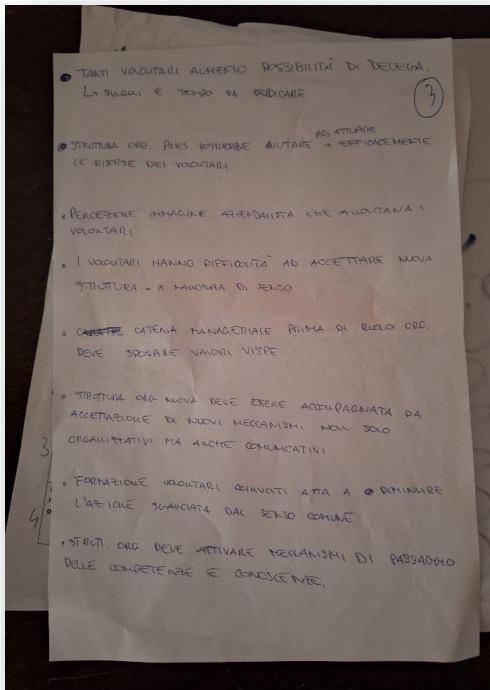 • TANTI VOLONTARI AUMENTO POSSIBILITÀ DI DELEGA.
↳ E TEMPO DA DEDICARE
3
AD ATTUARE
• STRUTTURA ORG. POTREBBE AIUTARE + EFFICACEMENTE
LE RISORSE DEI VOLONTARI
• PERCEZIONE IMMAGINE AZIENDALISTA CHE ALLONTANA I
VOLONTARI
• I VOLONTARI HANNO DIFFICOLTÀ AD ACCETTARE NUOVA
STRUTTURA - X MANCANZA DI SENSO
• CATENA MANAGERIALE PRIMA DI RUOLO ORG.
DEVE SPOSARE VALORI VISPE
• STRUTTURA ORG NUOVA DEVE ESSERE ACCOMPAGNATA DA
ACCETTAZIONE DI NUOVI MECCANISMI NON SOLO
ORGANIZZATIVI MA ANCHE COMUNICATIVI
• FORMAZIONE VOLONTARI ATTA A DIMINUIRE
L'AZIONE SGANCIATA DAL SENSO COMUNE
• STRUTT. ORG. DEVE ATTIVARE MECCANISMI DI PASSAGGIO
DELLE COMPETENZE E CONOSCENZE.
3
4